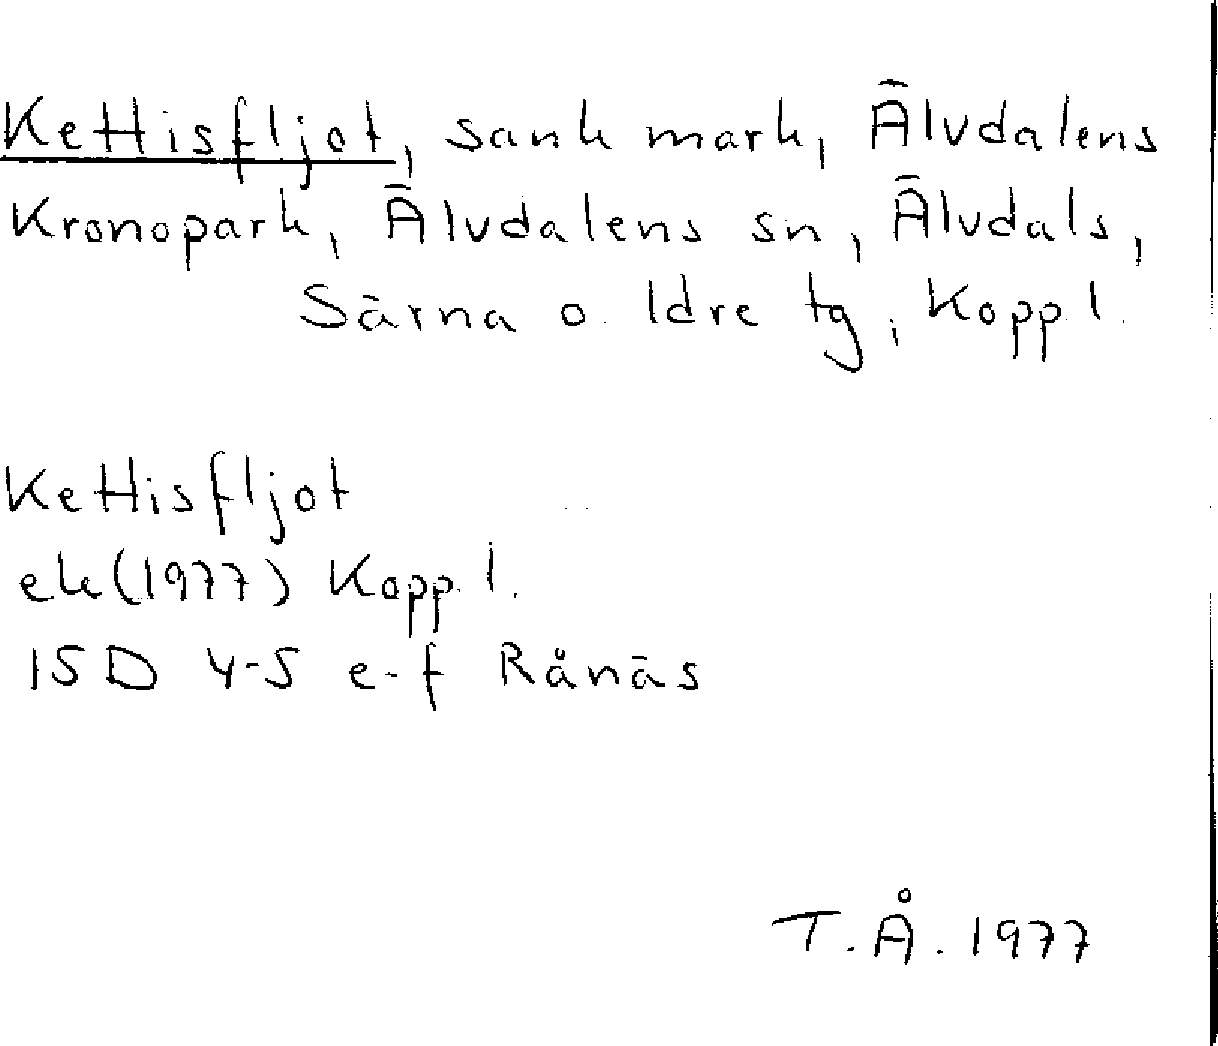 Kettisfljot, sank mark, Älvdalens
Kronopark, Älvdalens sn, Älvdals,
Särna o. Idre tg, Kopp. l.
Kettisfljot
ek(1977) Kopp. l.
15D 4-5 e-f Rånäs
T.Å. 1977